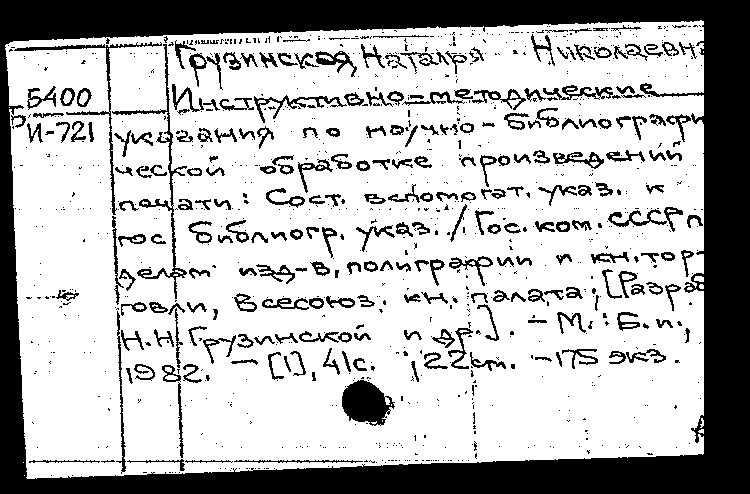 Грузинская Наталья Николаевна
Б 5400
И-721
Инструктивно-методические
указания по научно-библиографи
ческой обработке произведений
печати: Сост. вспомогат. указ. к
гос библиогр. указ. / Гос. ком. СССР п
делам изд-в, полиграфии и кн. тор-
говли, Всесоюз. кн. палата; [Разраб
Н.Н. Грузинской и др.]. - М.: Б.и.,
1982. - [1], 41с. ; 22см. - 175 экз.